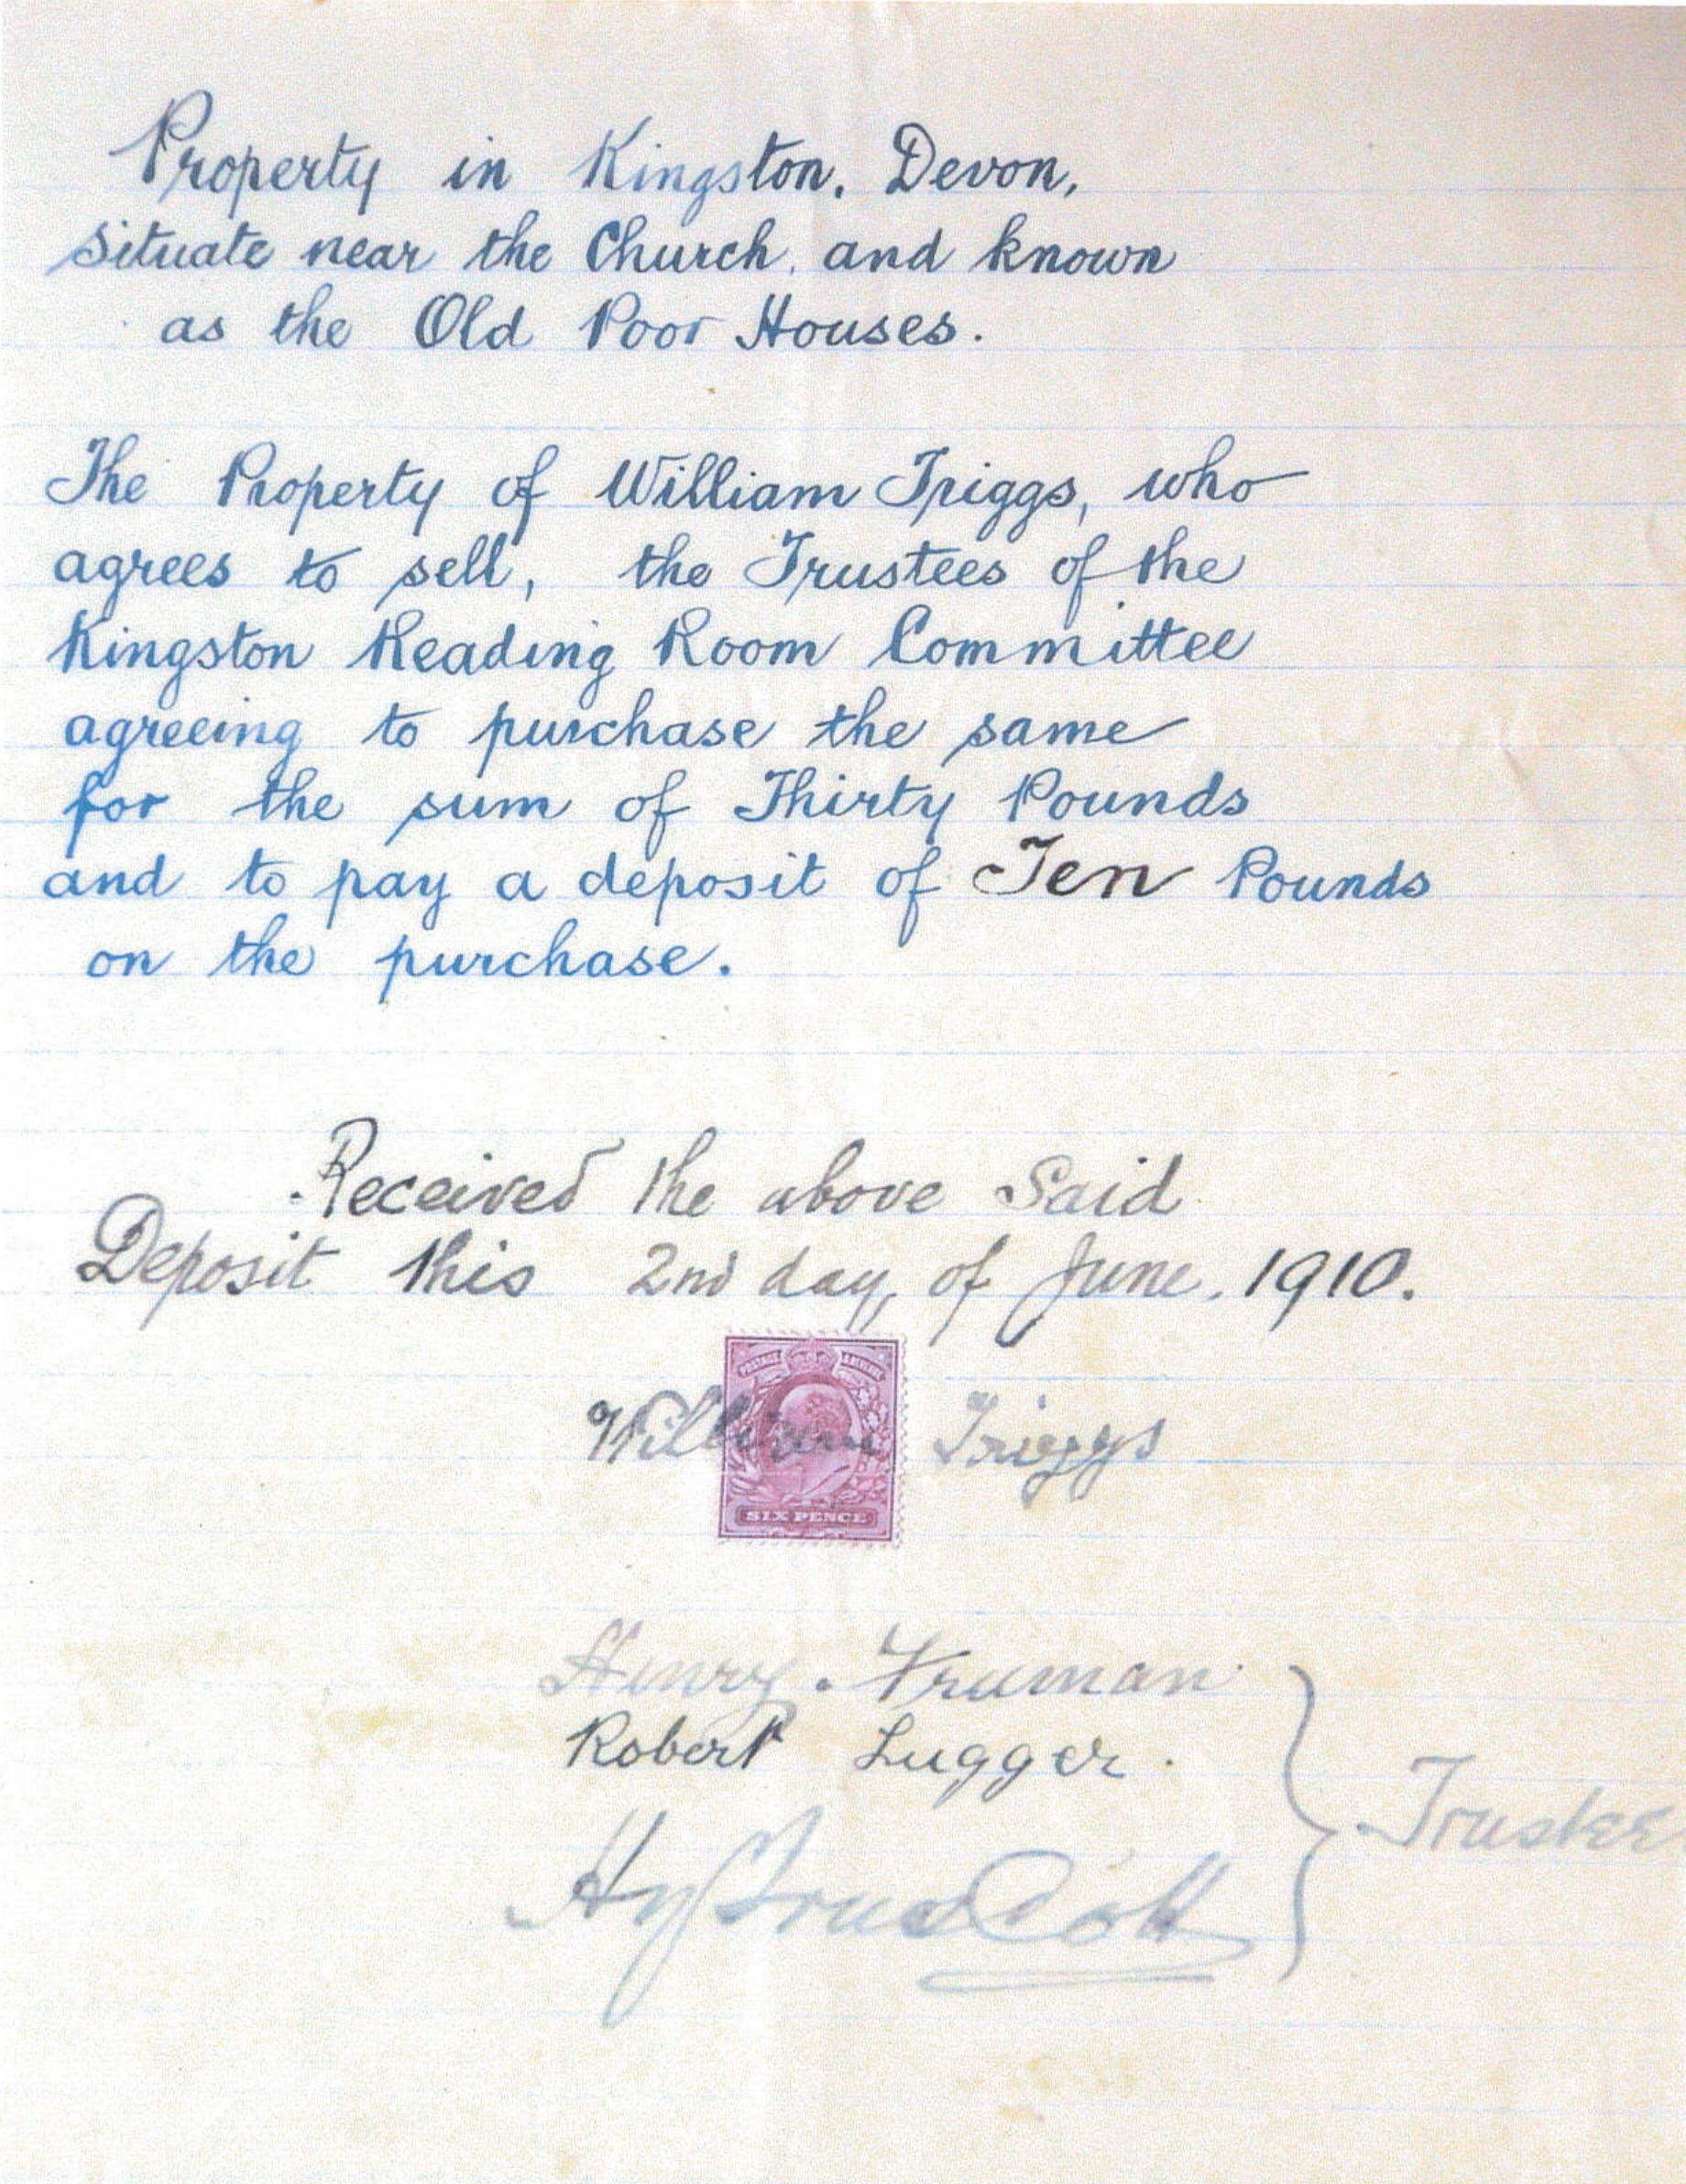 Property in Kingston, Devon,
situate near the Church, and known
as the Old Poor Houses.
The Property of William Triggs, who
agrees to sell, the Trustees of the
Kingston Reading Room Committee
agreeing to purchase the same
for the sum of Thirty Pounds
and to pay a deposit of Ten Pounds
on the purchase.
Received the above Said
Deposit this 2nd day, of June, 1910.
POSTAGE & REVENUE
William Triggs
SIX PENCE
Henry. Truman
Robert Lugger.
Trustee
Hy Truscott